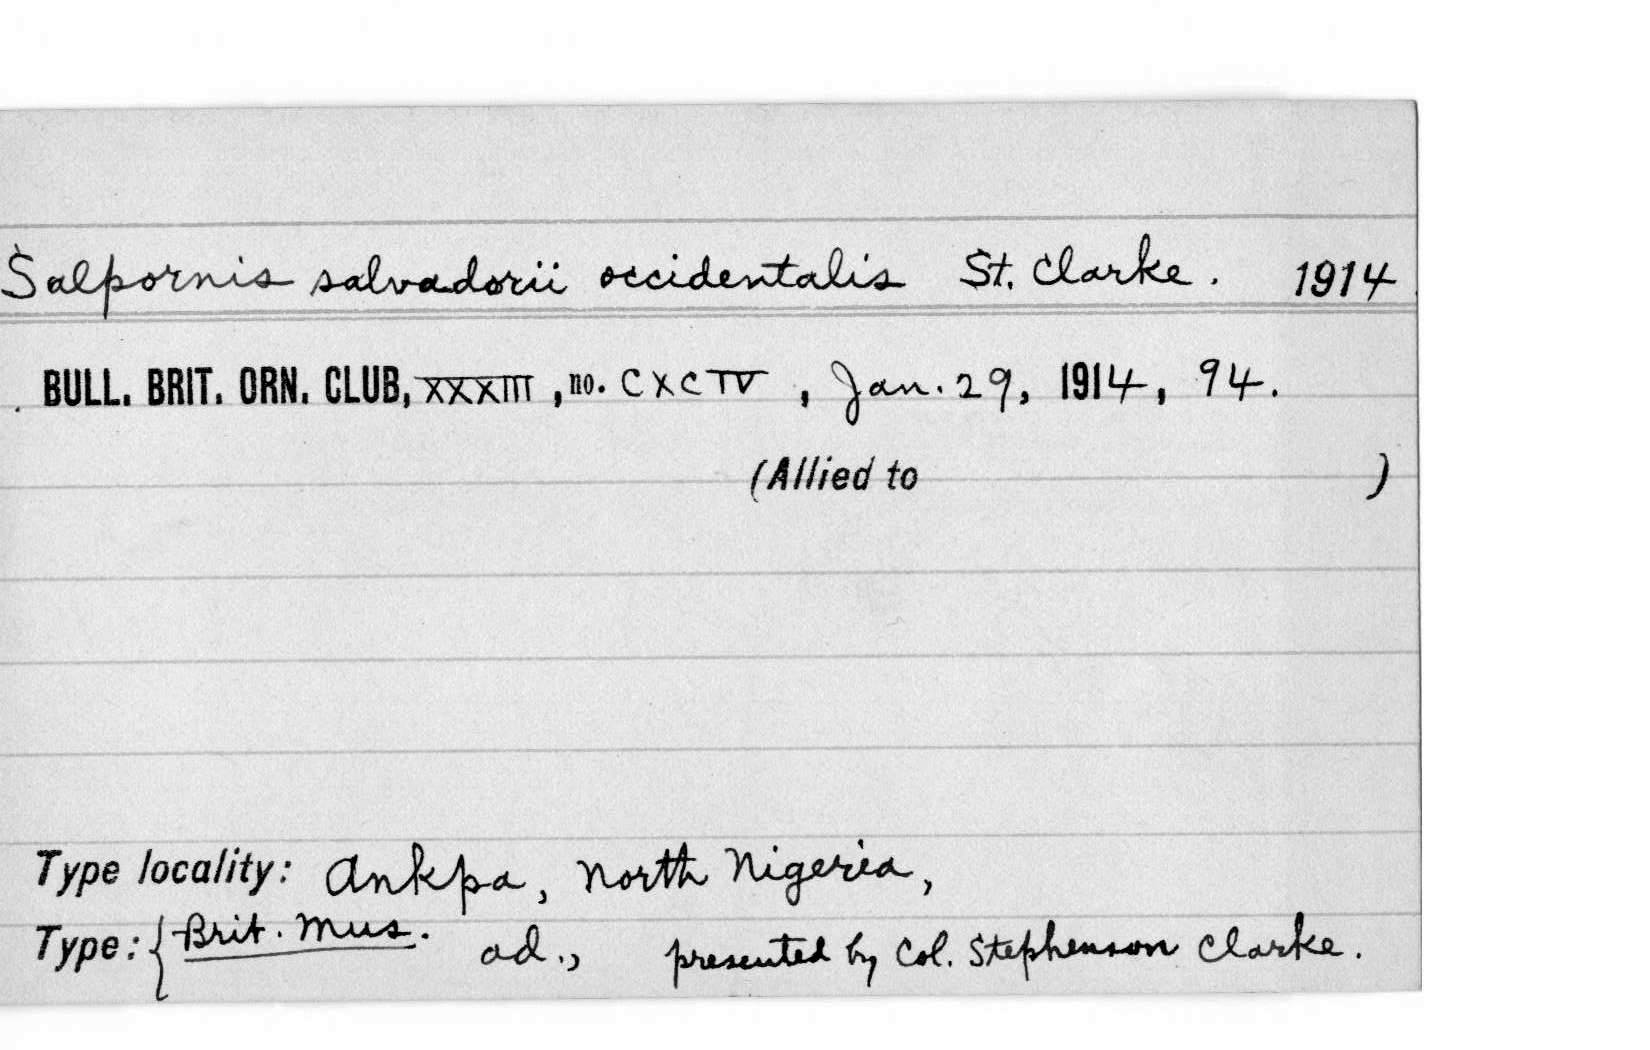 Salpornis salvadorii occidentalis St. Clarke. 1914
BULL. BRIT. ORN. CLUB, XXXIII, no. CXCIV, Jan. 29, 1914, 94.
(Allied to )
Type locality: Ankpa, North Nigeria,
Type: { Brit. Mus. ad., presented by Col. Stephenson Clarke.